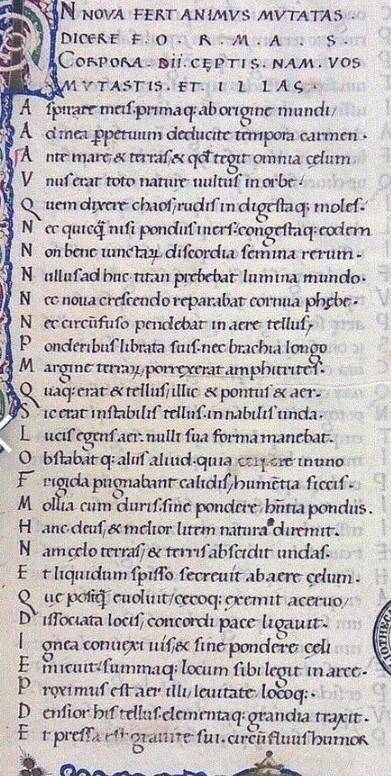 N NOVA FERT ANIMVS MVTATAS
DICERE F O R M A S .
CORPORA DII. CĘPTIS. NAM. VOS
MVTASTIS. ET. I LLAS.
A spirate meis. primaq; ab origine mundi/
A d mea ꝑpetuum deducite tempora carmen.
A nte mare, & terras, & qđ tegit omnia celum
V nus erat toto nature uultus in orbe/
Q uem dixere chaos, rudis indigestaq; moles.
N ec quicq̃ nisi pondus iners. congestaq; eodem
N on bene iunctaꝝ discordia semina rerum.
N ullus ad huc titan prebebat lumina mundo.
N ec noua crescendo reparabat cornua phębe.
N ec circũfuso pendebat in aere tellus/
P onderibus librata suis. nec brachia longo
M argine terraꝝ porrexerat amphitrites.
Q uaq; erat & tellus, illic & pontus & aer.
S ic erat instabilis tellus. innabilis unda.
L ucis egens aer. nulli sua forma manebat.
O bstabat q; aliis aliud. quia corpore in uno
F rigida pugnabant calidis, humẽtia siccis.
M ollia cum duris. sine pondere hñtia pondus.
H anc deus, & melior litem natura diremit.
N am celo terras, & terris abscidit undas.
E t liquidum spisso secreuit ab aere çelum.
Q ue postq̃ euoluit, cęcoq; exemit aceruo/
D issociata locis, concordi pace ligauit.
I gnea conuexi uis, & sine pondere celi
E micuit. summaq; locum sibi legit in arce.
P roximus est aer illi, leuitate locoq;.
D ensior his tellus. elementaq; grandia traxit.
E t pressa est grauite sui. circũfluus humor